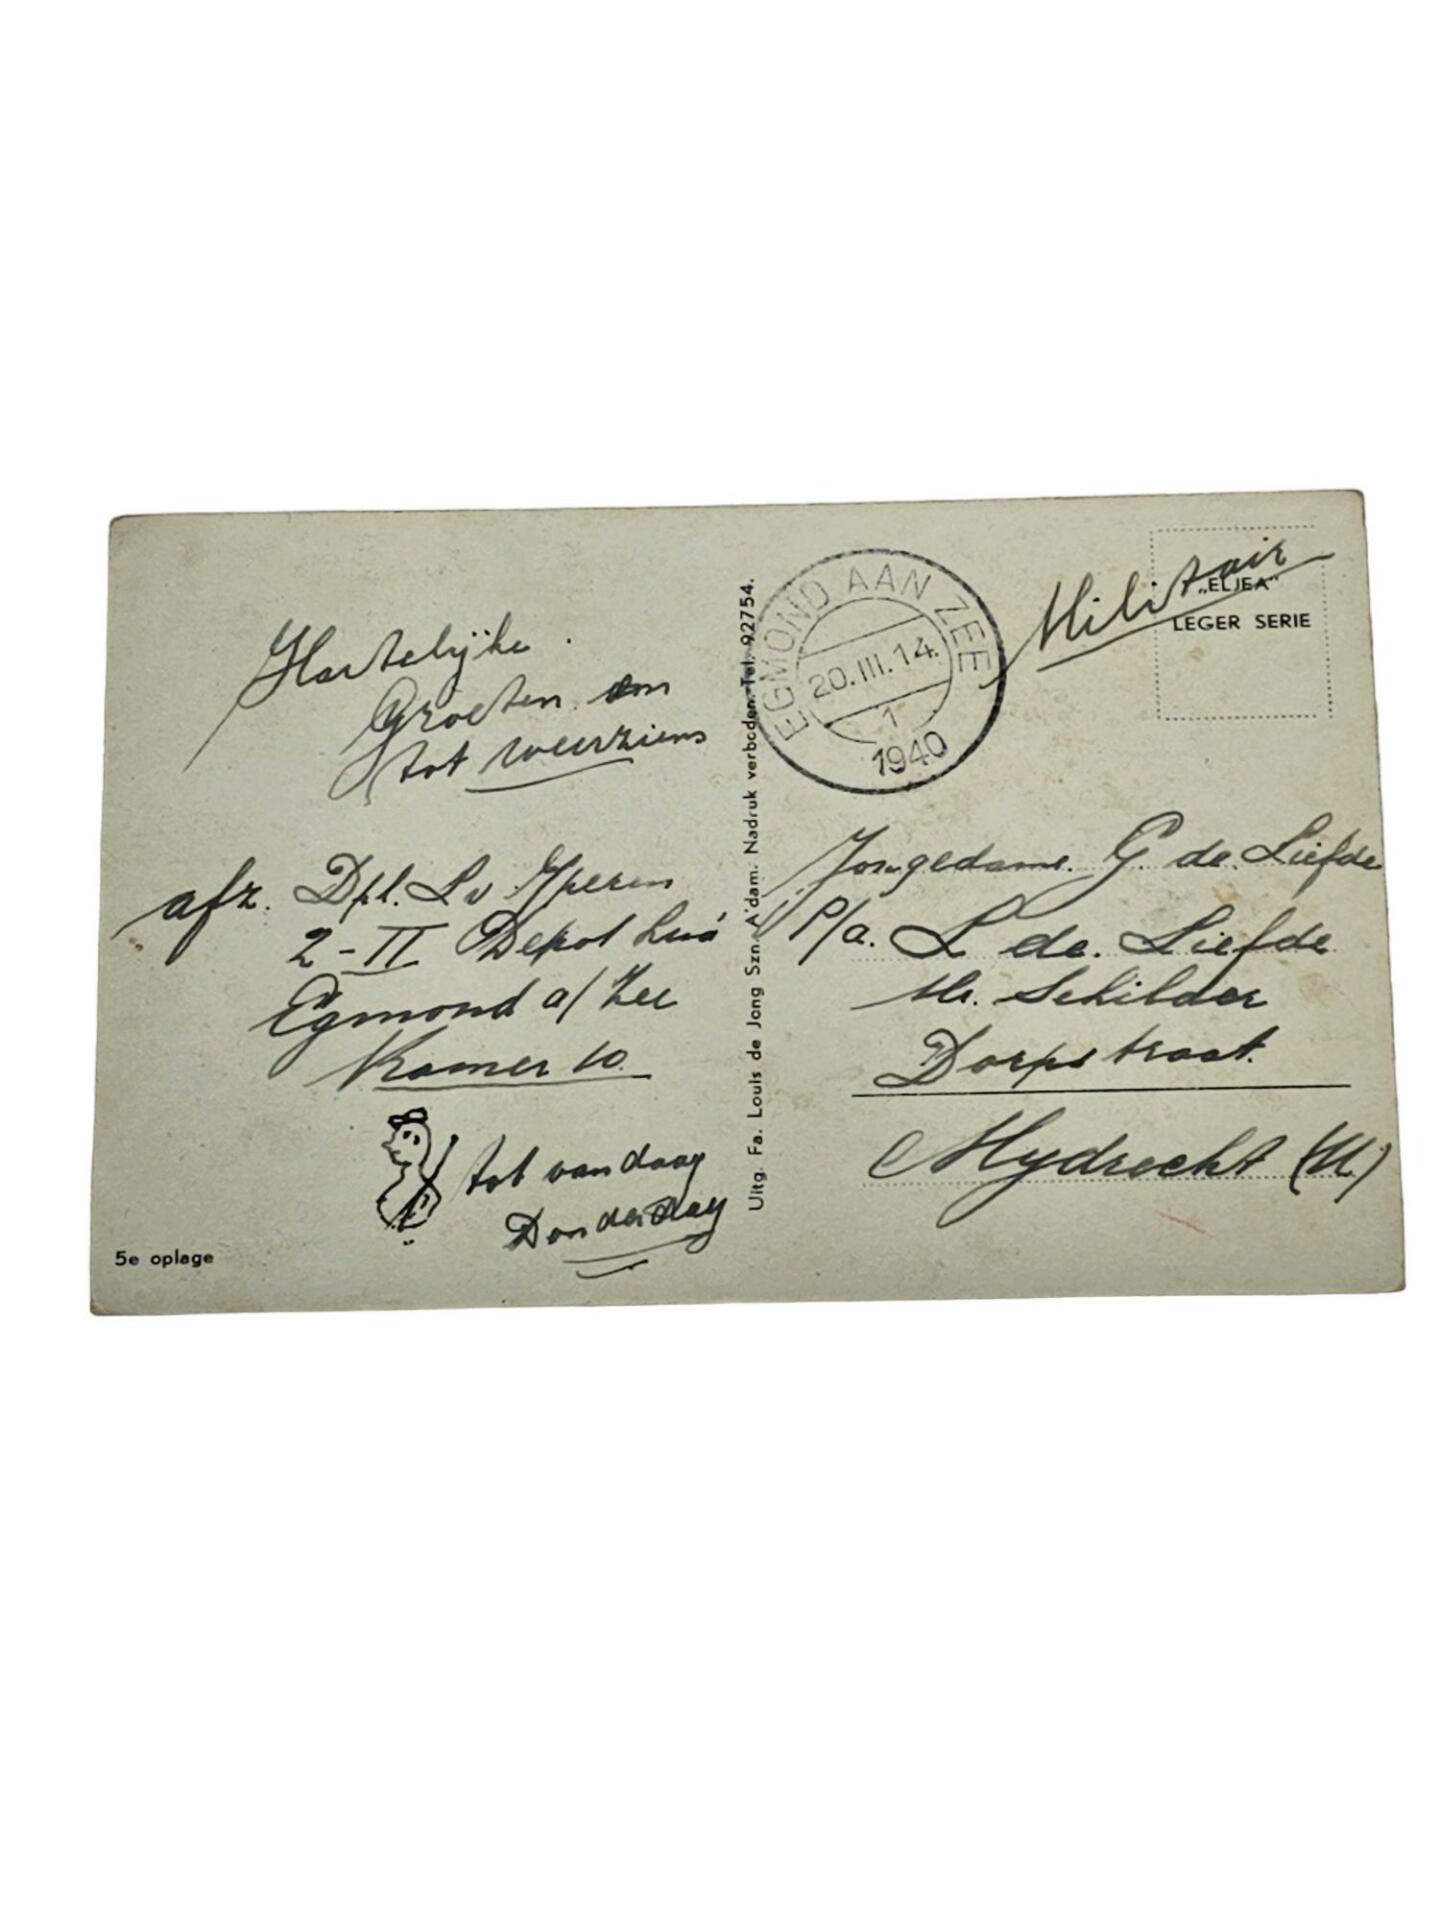 Hartelijke
Groeten en
tot weerziens
afz. Dpl. L v Yperen
2-II Depot Lua
Egmond a/ Zee
Kamer 10.
tot vandaag
Donderdag
5e oplage
Uitg. Fa. Louis de Jong Szn. A'dam. Nadruk verboden. Tel. 92754.
EGMOND AAN ZEE
20.III.14.
1
1940
Militair
„ELJEA"
LEGER SERIE
Jongedame. G. de Liefde
P/a. L de. Liefde
Mr. Schilder
Dorpstraat.
Mydrecht (U.)